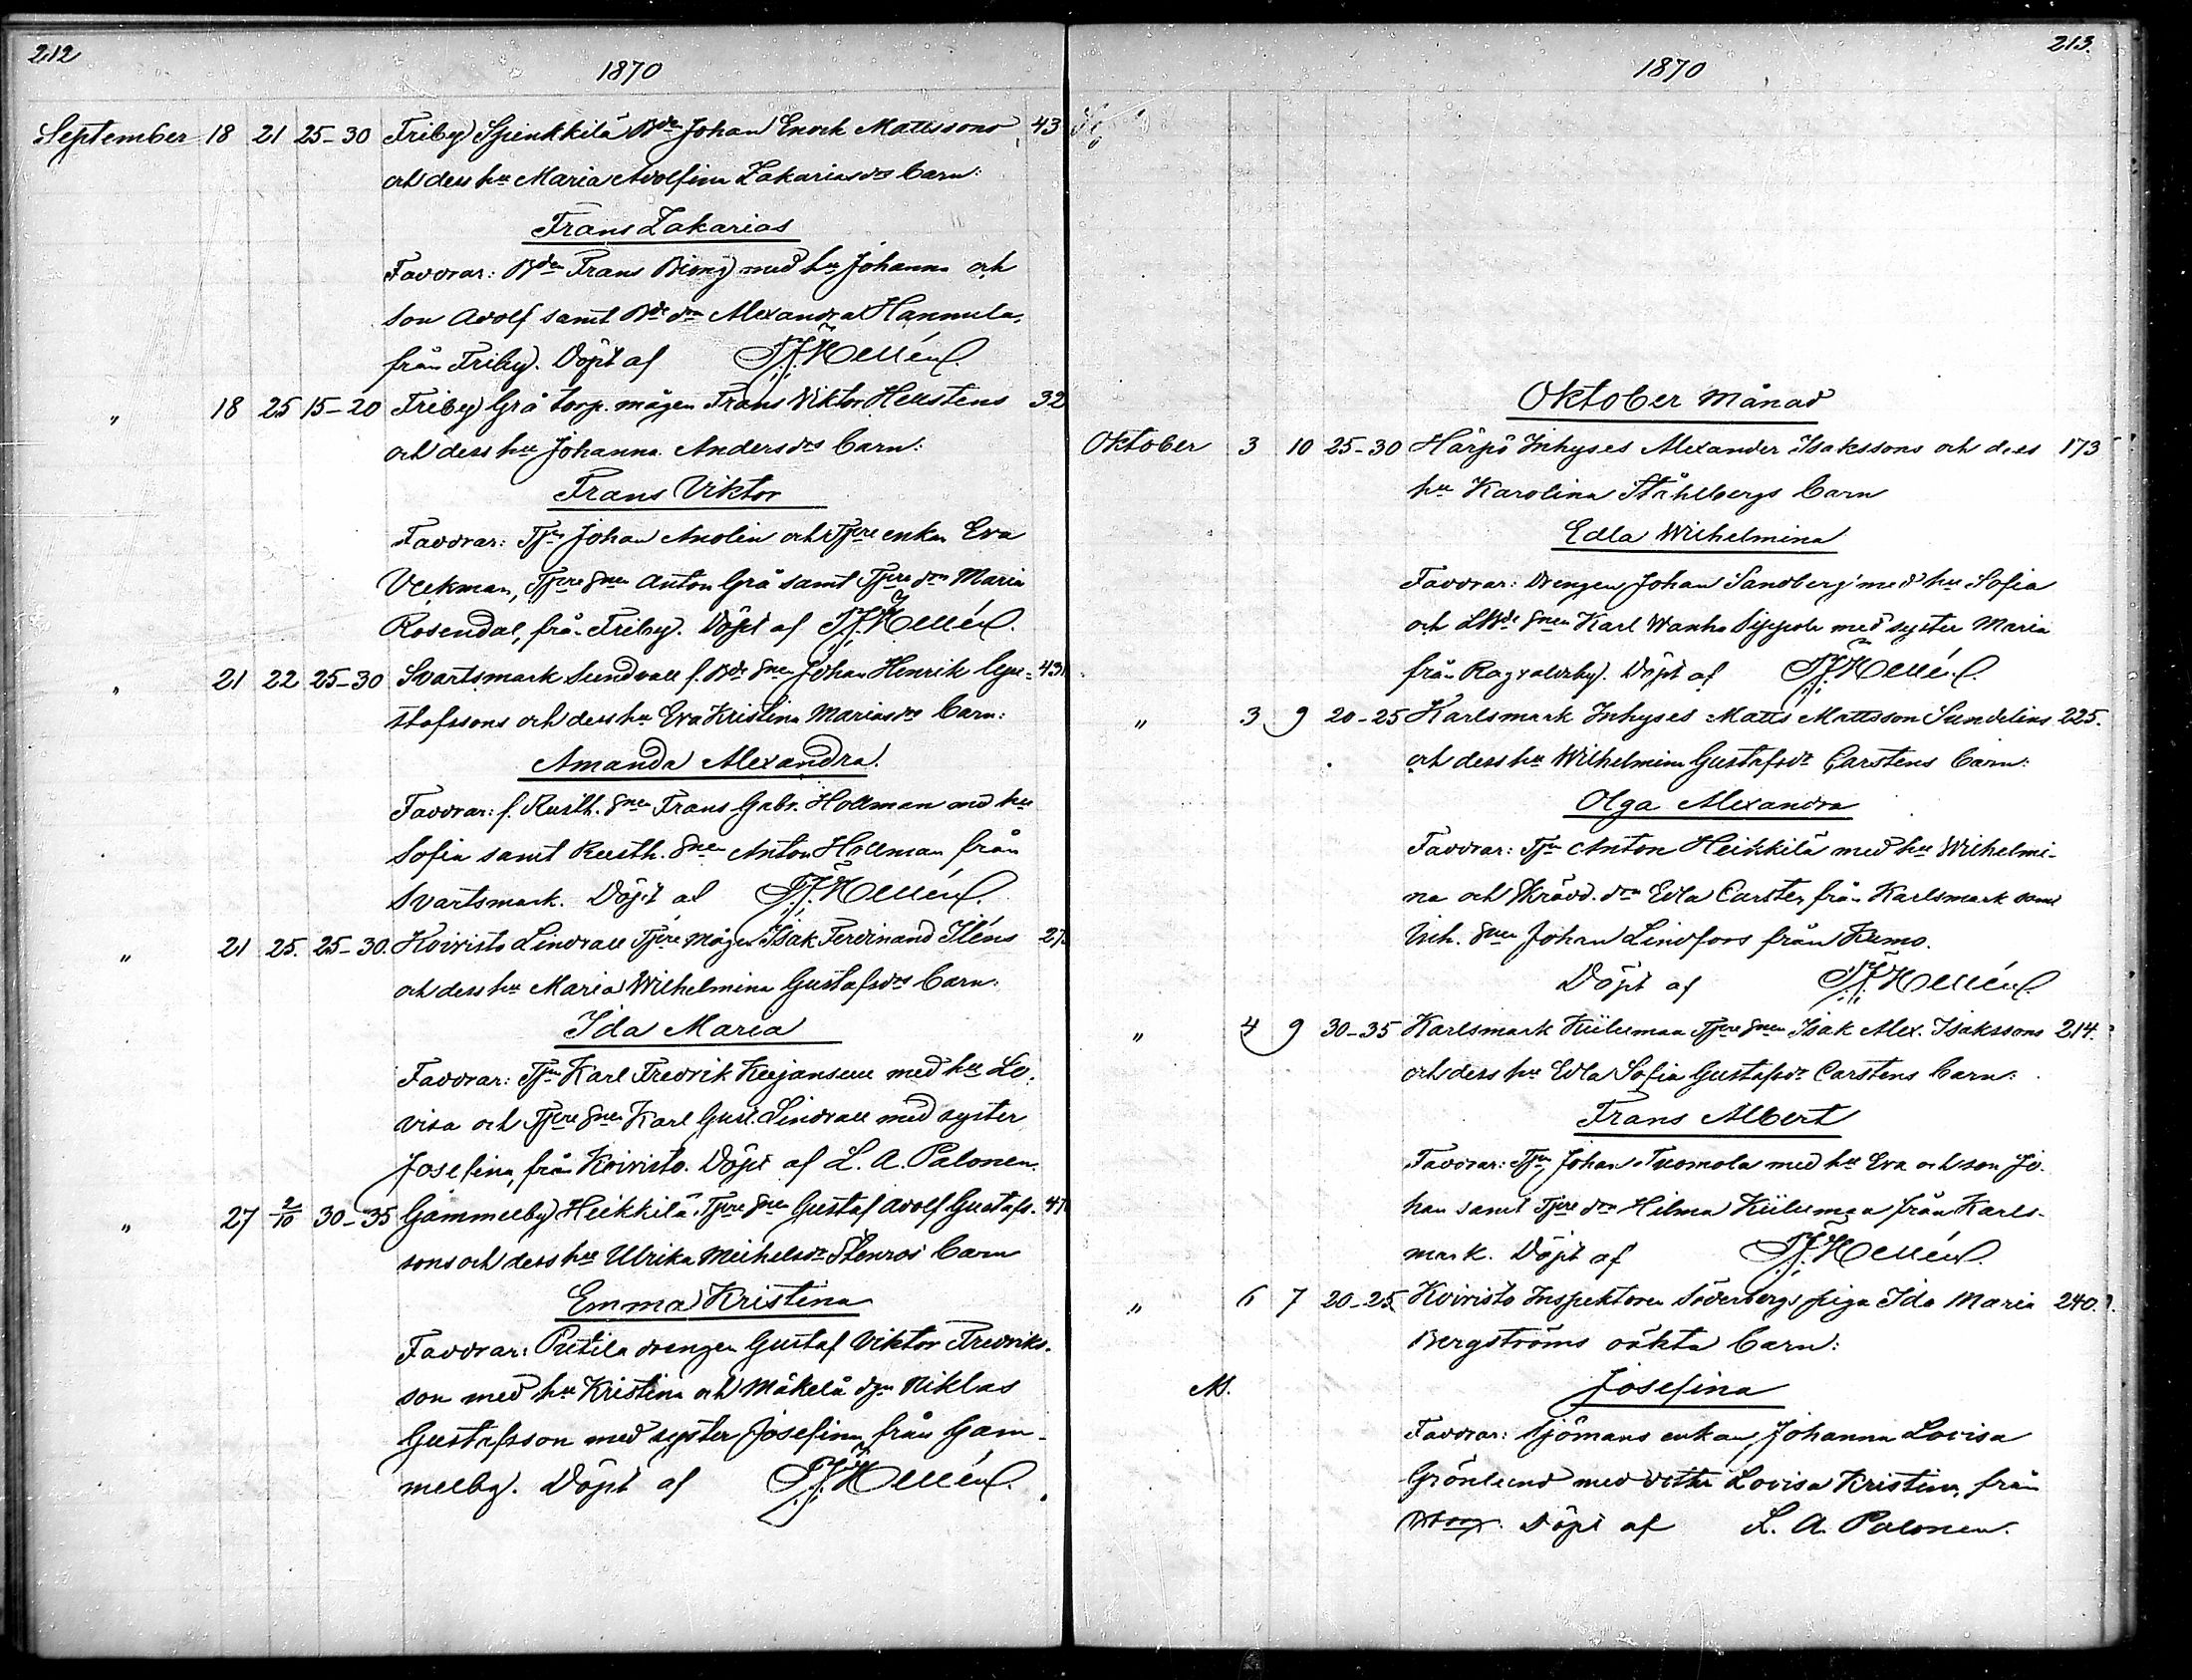 212
1870
September 18 21 25-30 Friby Spinkkilä Bden Johan Enock Mattssons 43
och dess hu Maria Adolfina Zakariasdrs barn:
Frans Zakarias
Faddrar: Bden Frans Biong med hu Johanna och
son Adolf samt Bde dn Alexandra Hannula,
från Friby. Döpt af Hellén.
" 18 25 15-20 Friby Grå torp. mågen Frans Viktor Hellstens 32
och dess hu Johanna Andersdrs barn:
Frans Viktor
Faddrar: Tjn Johan Anolin och Tjre enkan Eva
Veckman, Tjre snen Anton Grå samt Tjre drn Maria
Rosendal, från Friby. Döpt af Hellén.
" 21 22 25-30 Svartsmark Sundvall f. Bde snen Johan Henrik Gu- 431
stafssons och dess hu Eva Kristina Mariasdrs barn:
Amanda Alexandra.
Faddrar: f. Rusth. snen Frans Gabr. Hollman med hu
Sofia samt Rusth. snen Anton Hollman från
Svartsmark. Döpt af Hellén.
" 21 25. 25-30. Koivisto Lindvall Tjre mågen Isak Ferdinand Iléns 27
och dess hu Maria Wilhelmina Gustafsdrs barn:
Ida Maria
Faddrar: Tjn Karl Fredrik Keijansuu med hu Lo-
visa och Tjre snen Karl Gust. Lindvall med syster
Josefina, från Koivisto. Döpt af L. A. Palonen.
" 27 2/10 30-35 Gammelby Heikkilä Tjre snen Gustaf Adolf Gustafs- 41
sons och dess hu Ulrika Michelsdr Stenros barn
Emma Kristina
Faddrar: Prittila drengen Gustaf Viktor Fredriks-
son med hu Kristina och Mäkelä dgn Niklas
Gustafsson med syster Josefina från Gam-
melby. Döpt af Hellén.
213.
1870
Oktober Månad
Oktober 3 10 25-30 Härpö Inhyses Alexander Isakssons och dess 173
hu Karolina Ståhlbergs barn
Edla Wilhelmina
Faddrar: Drengen Johan Sandberg med hu Sofia
och LBde snen Karl Wanha Sippola med syster Maria
från Ragvaldsby. Döpt af Hellén.
" 3 9 20-25 Karlsmark Inhyses Matts Mattsson Sundelins 225.
och dess hu Wilhelmina Gustafsdr Carstens barn:
Olga Alexandra
Faddrar: Tjn Anton Heikkilä med hu Wilhelmi-
na och Skrädd. drn Edla Carsten från Karlsmark samt
Inh. snen Johan Lindfors från Kumo.
Döpt af Hellén.
" 4 9 30-35 Karlsmark Kiilunmaa Tjre snen Isak Alex. Isakssons 214.
och dess hu Edla Sofia Gustafsdr Carstens barn:
Frans Albert
Faddrar: Tjn Johan Tuomola med hu Eva och son Jo-
han samt Tjre drn Hilma Kiilunmaa från Karls-
mark. Döpt af Hellén.
" 6 7 20-25. Koivisto Inspektoren Söderbergs piga Ida Maria 240.
Bergströms oäkta barn:
Josefina
Faddrar: Sjömans enkan Johanna Lovisa
Grönlund med dotter Lovisa Kristina, från
Bborg. Döpt af L. A. Palonen.